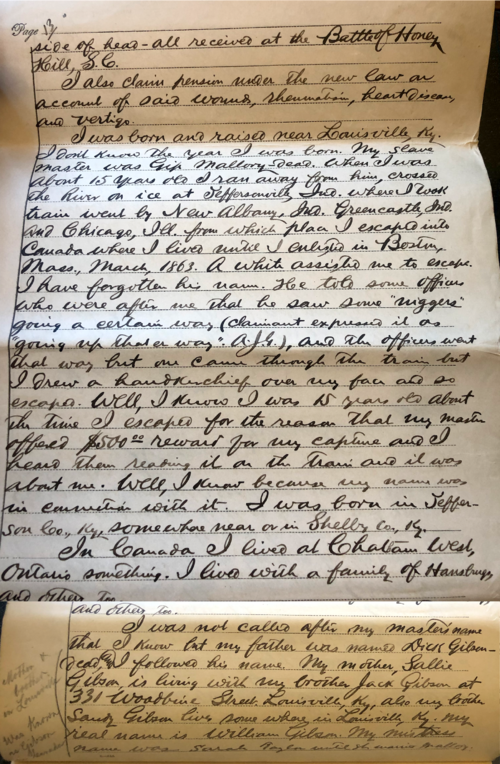 Page 3
side of head - all received at the Battle of Honey
Hill, S.C.
I also claim pension under the new law on
account of said wounds, rheumatism, heart disease,
and vertigo.
I was born and raised near Louisville, Ky.
I don't know the year I was born. My slave
master was Gip Mallory - dead. When I was
about 15 years old I ran away from him, crossed
the river on ice at Jeffersonville, Ind. where I took
train went by New Albany, Ind. Greencastle, Ind.
and Chicago, Ill. from which place I escaped into
Canada where I lived until I enlisted in Boston,
Mass., March, 1863. A white assisted me to escape.
I have forgotten his name. He told some officers
who were after me that he saw some "niggers"
going a certain way (claimant expressed it as
"going up that er way". A.J.G.), and the officers went
that way but one came through the train but
I drew a handkerchief over my face and so
escaped. Well, I know I was 15 years old about
the time I escaped for the reason that my master
offered $500 00 reward for my capture and I
heard them reading it on the train and it was
about me. Well, I know because my name was
in connection with it. I was born in Jeffer-
son Co., Ky, somewhere near or in Shelby Co, Ky.
In Canada I lived at Chattam West,
Ontario something. I lived with a family of Hansburys
and others too.
and others too.
I was not called after my master's name
that I know but my father was named Dick Gibson -
dead, & I followed his name. My mother, Sallie
Gibson, is living with my brother Jack Gibson at
331 Woodbine Street, Louisville, Ky, also my brother
Sandy Gibson lives some where in Louisville, Ky. My
real name is William Gibson. My mistress
name was Sarah Taylor until she married Mallory.
Mother &
brother
in Louisville
Was known
as Gibson